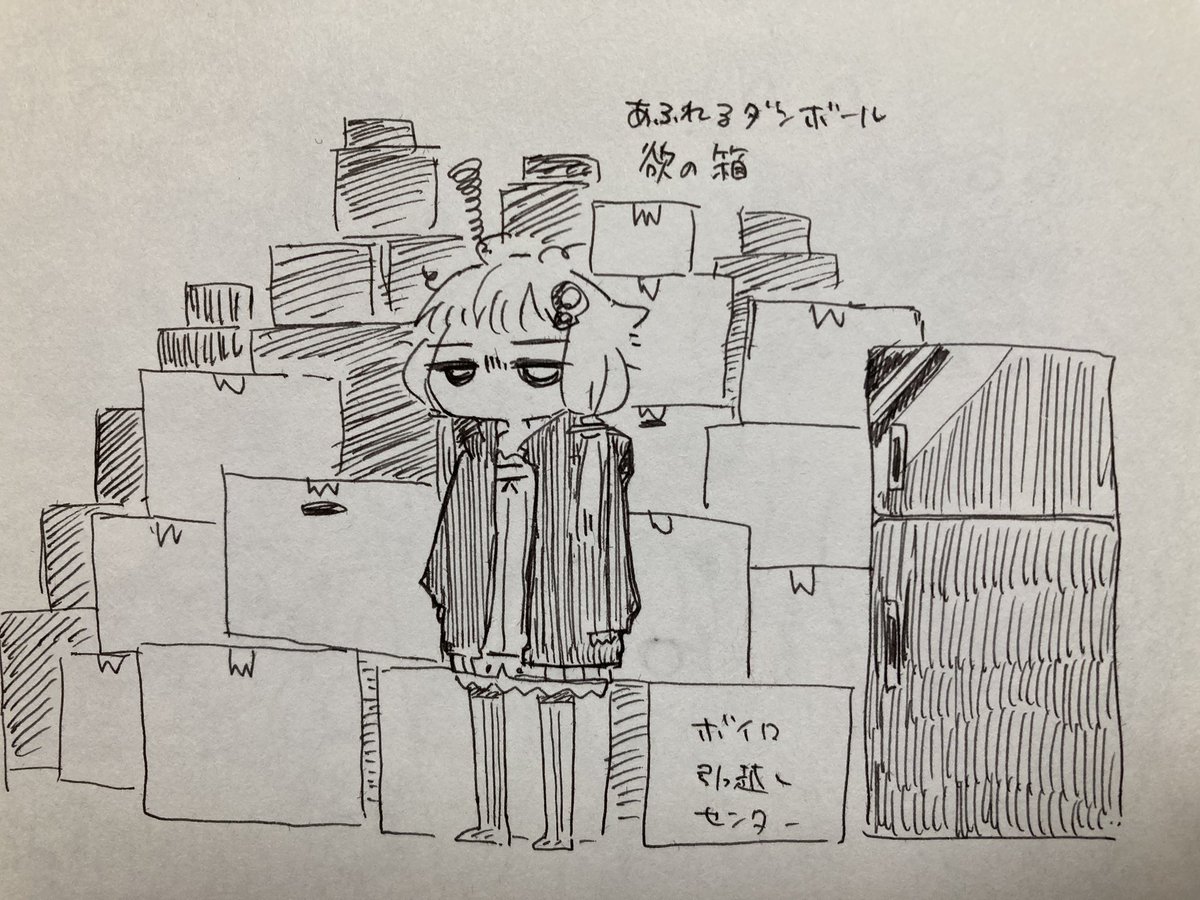 あふれるダンボール
欲の箱
ボイロ
引っ越し
センター